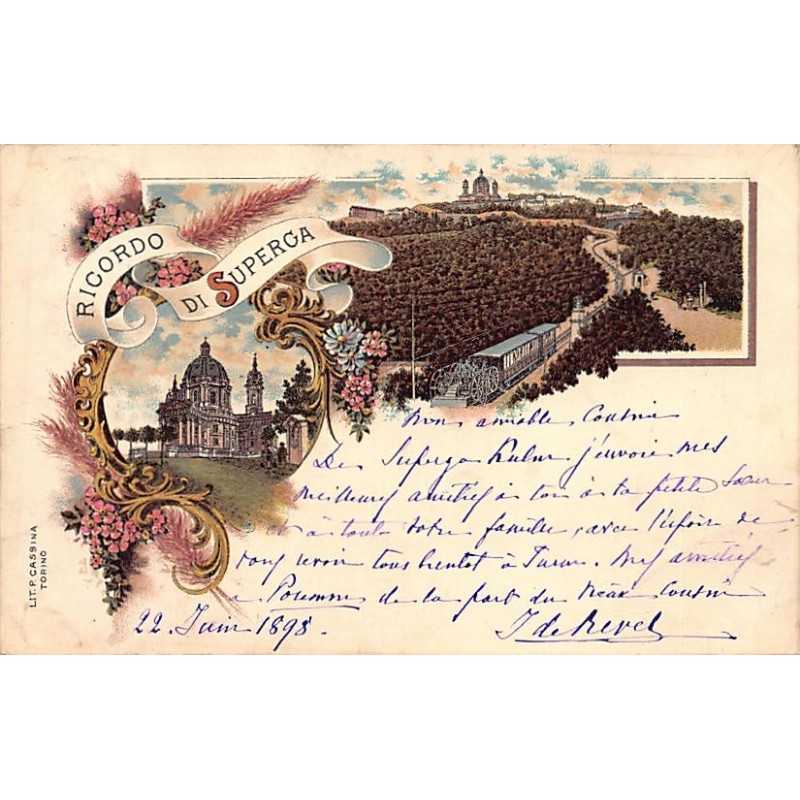 RICORDO
DI SUPERGA
Mon aimable Cousine
De Superga Kulm j'envoie mes
meilleures amitiés à toi à ta petite Sœur
et à toute votre famille, avec l'espoir de
vous revoir tous bientôt à Turin. Mes amitiés
à de la part du Cousin
22. Juin 1898.
J de Revel
LIT. P. CASSINA
TORINO